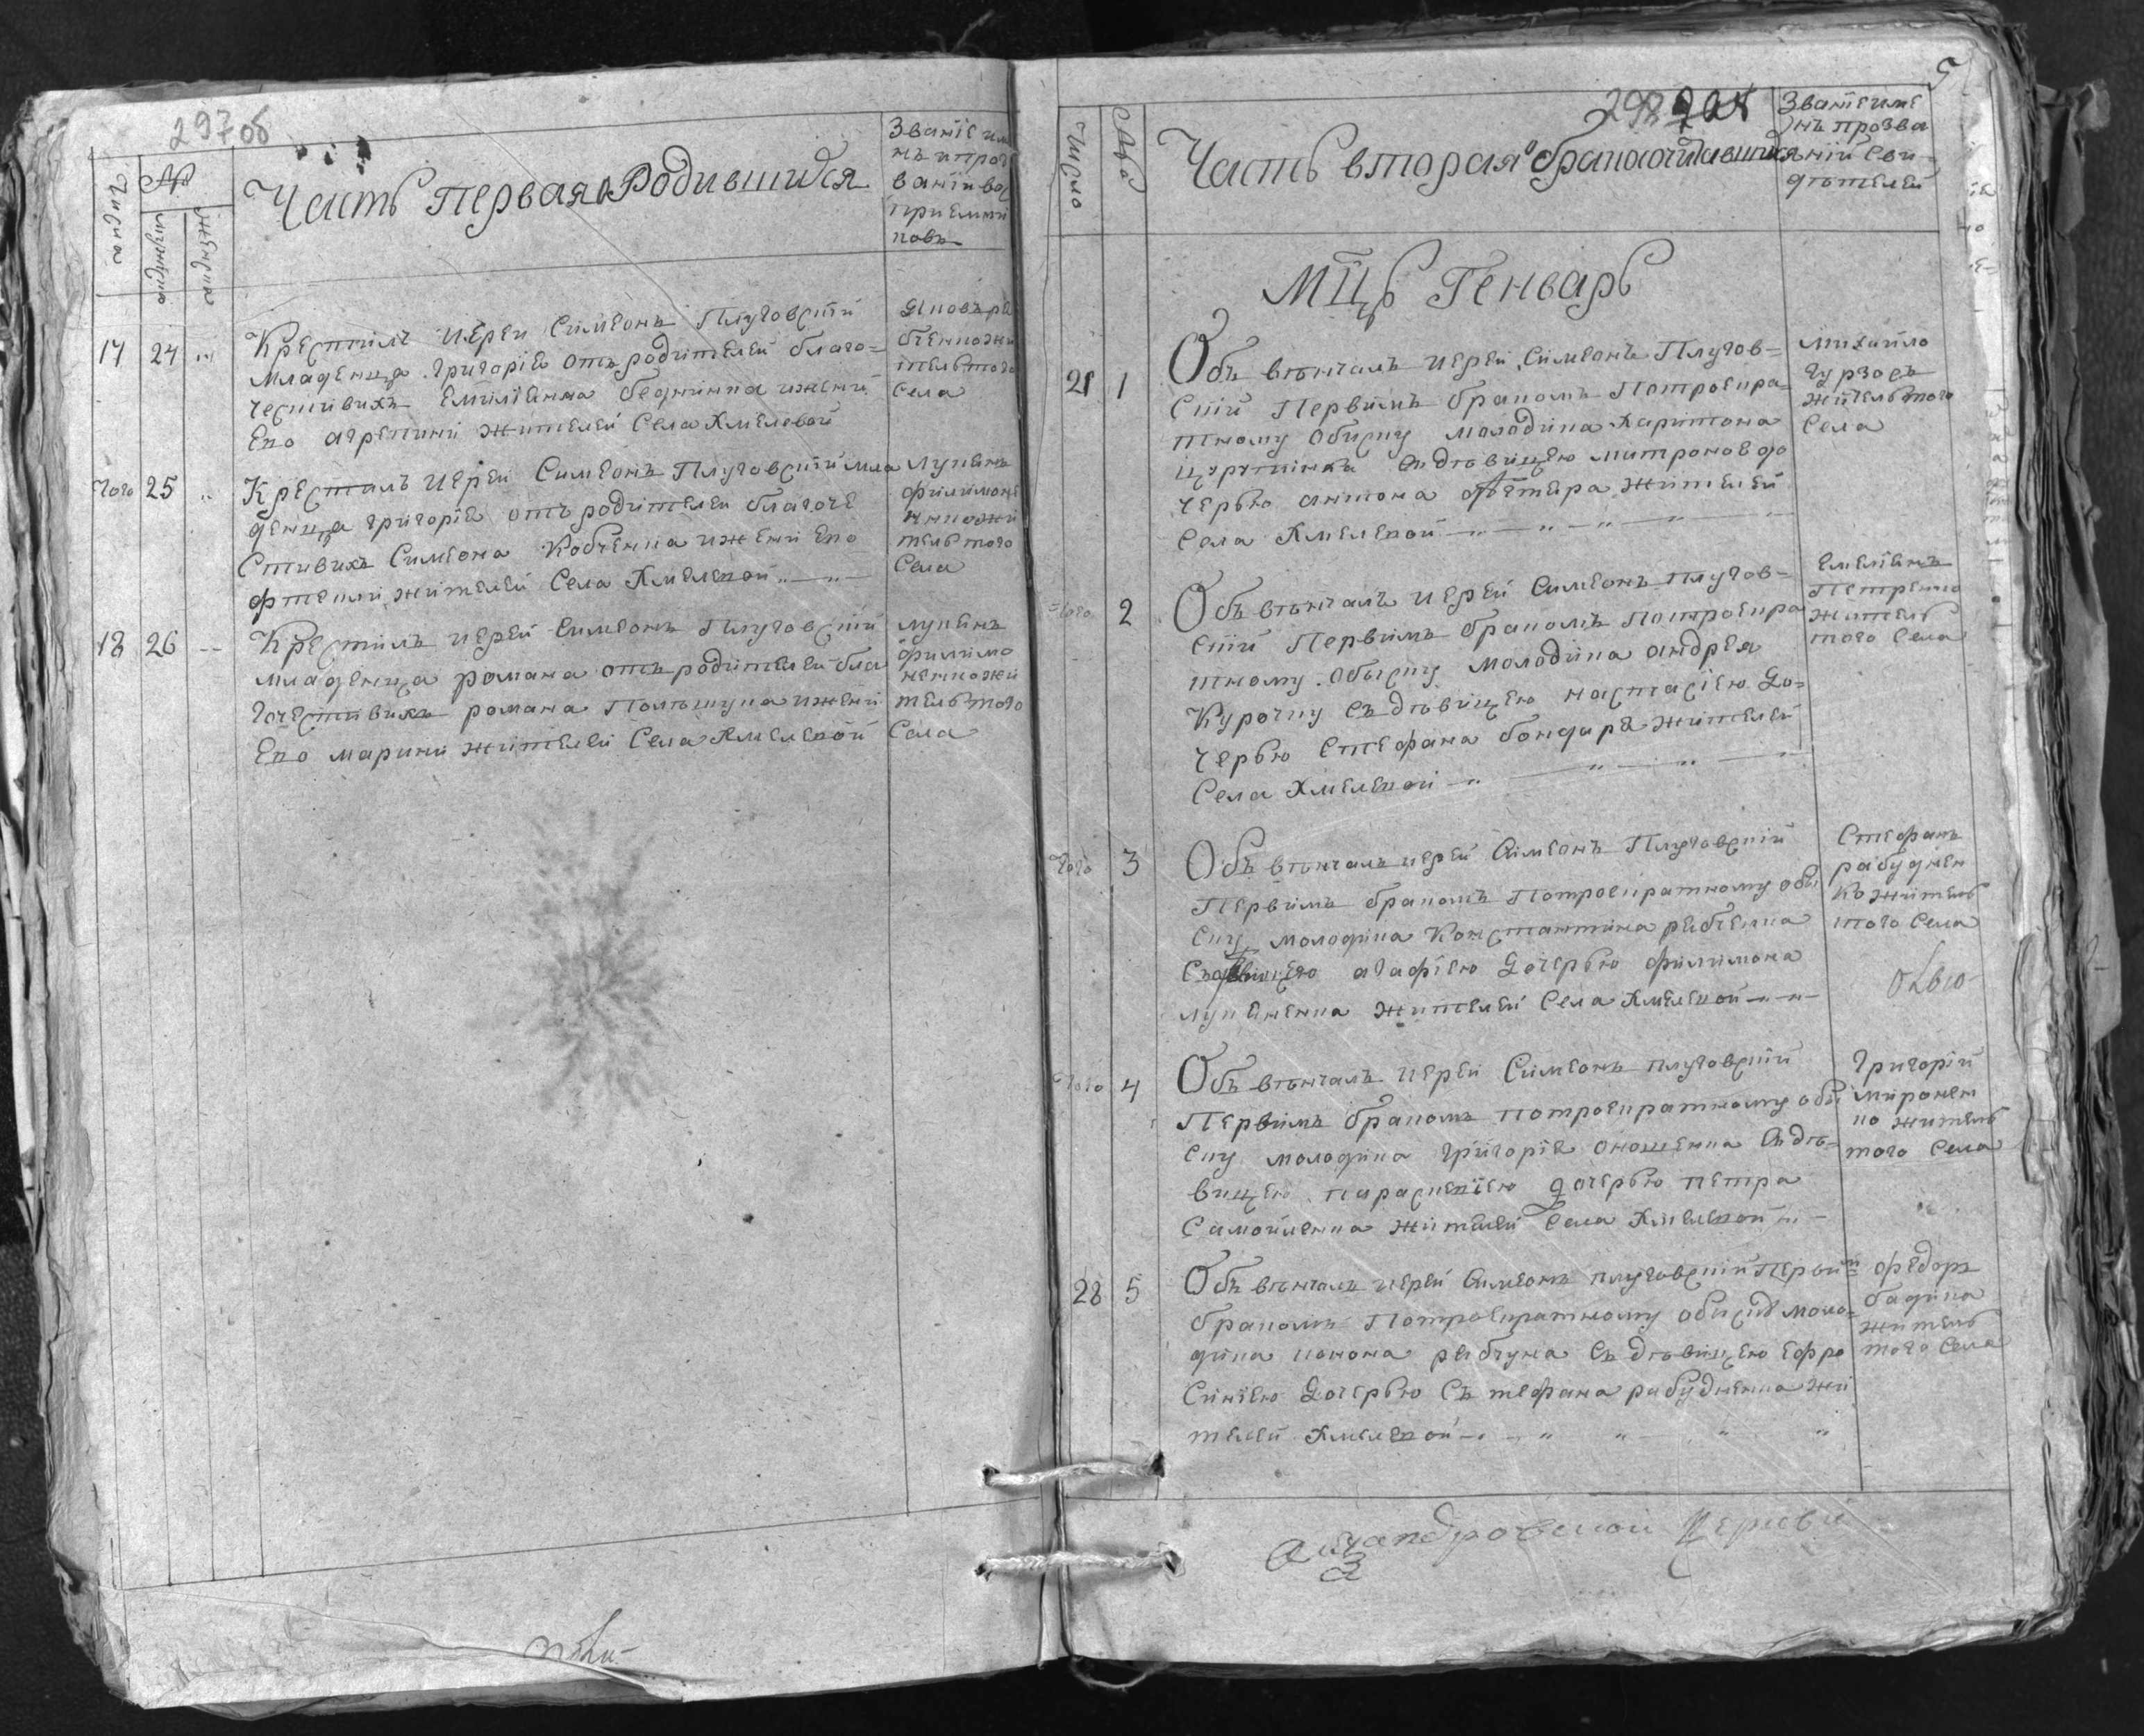 297 об
Числа
№
мужеска
женска
Часть Первая о Родившихся
Званіе имя
нъ и проз
ваніи вос
приемни
ковъ
17 24
Крестилъ Иерей Симеонъ Плуговскій
младенца григорія отъ родителей благо=
честивихъ Емиліянна беднинка и жени
Его агрепини жителей Села Хмелевой
Яковъ ря
бченко жи
тель того
Села
того 25
Крестилъ Иерей Симеонъ Плуговскій мла
денца григорія отъ родителей благоче
Стивихъ Симеона Кобченка и жени Его
жителей Села Хмелевой
Лукянъ
филимоне
нко жи
тель того
Села
18 26
Крестилъ Иерей Симеонъ Плуговскій
младенца романа отъ родителей бла
гочестивихъ романа и жени
Его марини жителей Села Хмелевой
лукянъ
филимо
ненко жи
тель того
Села
5
298
Число
Часть вторая о бракосочитавшихся
Званіе име
нъ прозва
ній Сви-
дѣтелей
Мцъ Генварь
21 1
Объ вѣнчалъ иерей Симеонъ Плугов=
Скій Первимъ бракомъ Потроекра=
тному обиску молодика Харитона
дѣвицею митроновдо
черью антона жителей
Села Хмелевой
михайло
гурзосъ
житель того
Села
того 2
Объ вѣнчалъ иерей Симеонъ плугов=
скій Первимъ бракомъ Потроекра
тному обыску молодика андрея
Курочку съ дѣвицею настасіею до=
черью Стефана бондаря жителей
Села Хмелевой
Емеліянъ
Петренко
житель
того Села
того 3
Объ вѣнчалъ иерей Симеонъ Плуговскій
Первимъ бракомъ Потроекратному обы
ску молодика Константина рябченка
Съ дѣвицею агафіею дочерью филимона
лукяненка жителей Села Хмелевой
Стефанъ
рабуднен
Ко житель
того Села
того 4
Объ вѣнчалъ иерей Симеонъ плуговскій
Первимъ бракомъ потроекратному обы
ску молодика григорія оношенка Съ дѣ=
вицею параскевіею дочерью петра
Самойленка жителей Села Хмелевой
Григорій
миронен
ко житель
того Села
28 5
Объ вѣнчалъ иерей Симеонъ плуговскій Первим
бракомъ Потроекратному обиску моло=
дика конона рябчука Съ дѣвицею Ефро
Синіею дочерью Стефана рабудненка жи
телей Хмелевой
федоръ
бадика
житель
того Села